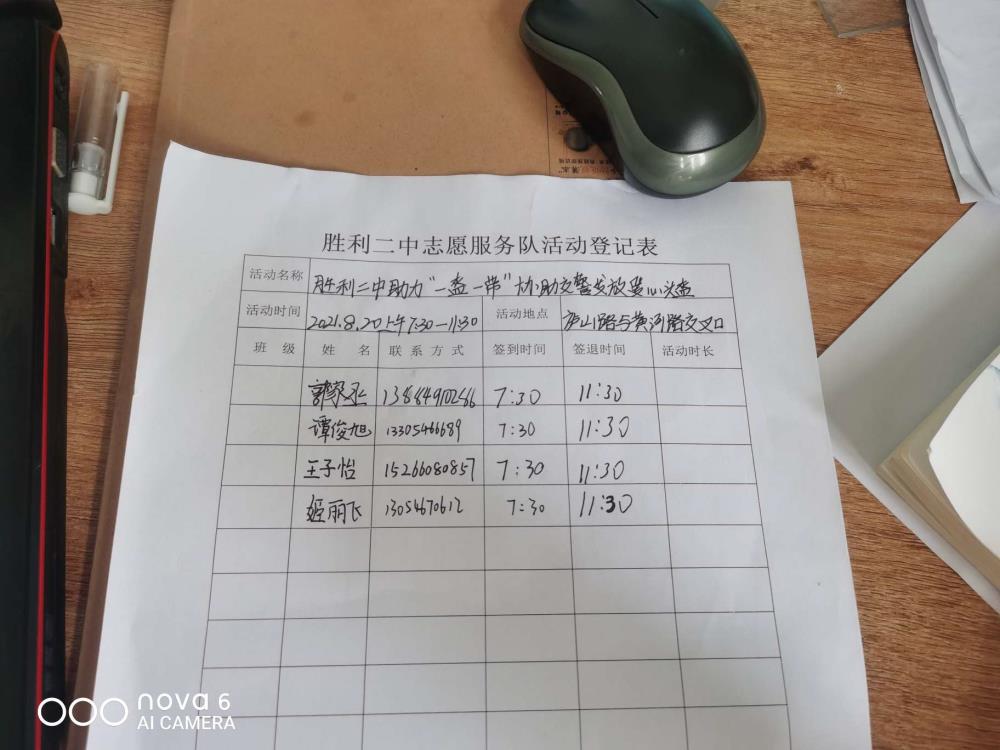 胜利二中志愿服务队活动登记表
活动名称 胜利二中助力"一盔一带"协助交警发放安心头盔
活动时间 2021.8.20上午7:30—11:30 活动地点 庐山路与黄河路交叉口
班级 姓名 联系方式 签到时间 签退时间 活动时长
7:30 11:30
谭俊旭 13305466689 7:30 11:30
王子怡 15266080857 7:30 11:30
姬丽飞 13054670612 7:30 11:30
nova 6
AI CAMERA